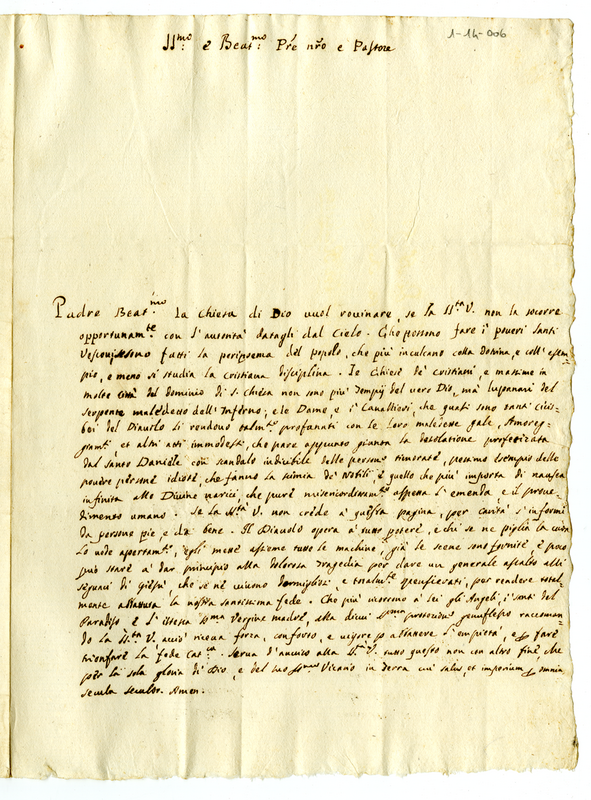 1-14-006
SS.mo e Beat.mo P're n'ro e Pastore
Padre Beat.mo La Chiesa di Dio vuol rovinare, se la SS.tà V. non la socorre
opportunam.te con l'autorità datagli dal Cielo. Che possono fare i poveri santi
Vescovi fatti la peripsema del popolo, che più inculcano colla dottrina, e coll'esem-
pio, e meno si studia la cristiana disciplina. Le Chiese de cristiani, e massime in
molte Città del dominio di S. Chiesa non sono più tempij del vero Dio, mà lupanari del
serpente maledetto dell'Inferno, e le Dame, e i Cavallieri, che quasi sono tanti cicis-
bei del Diavolo li rendono talm.te profanati con le loro maledette gale, Amoreg-
giam.ti, et altri atti immodesti, che pare appunto pianta la desolatione profetizata
dal santo Daniele con scandalo indicibile delle persone timorate, pessimo esempio delle
povere persone idiote, che fanno la scimia de Nobili, e quello che più importa di nausea
infinita alle Divine narici, che pure misericordiosam.te aspetta l'emenda, e il prove-
dimento umano. Se la SS.tà V. non crede a questa pagina, per carità s'informi
da persone pie, e da bene. Il Diavolo opera a tutto potere, e chi se ne piglia la cura
lo vede apertam.te, egli mette assieme tutte le machine, già le scene sono fornite, e poco
può stare a dar principio alla dolorosa tragedia per dare un generale assalto alli
seguaci di Giesù, che se ne vivono dormigliosi, e per rendere total-
mente la nostra santissima fede. Che più ricorrono à lei gli Angeli, i santi del
Paradiso e l'istessa S.ma Vergine madre, alla di cui protezione genuflesso raccoman-
do la SS.tà V. acciò riceva forza, conforto, e vigore p abbattere l'empietà, e p fare
trionfare la fede Cat.ca. Serva d'avviso alla SS.tà V. tutto questo non con altro fine, che
per la sola gloria di Dio, e del suo Vicario in terra cui salus, et imperium p omnia
secula seculor. Amen.